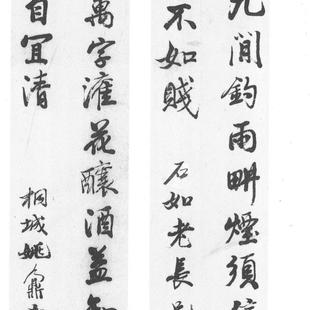 九閒釣雨畊煙須信
不如賤 石如老長
萬字灌花釀酒益知
自宜清 桐城姚鼐